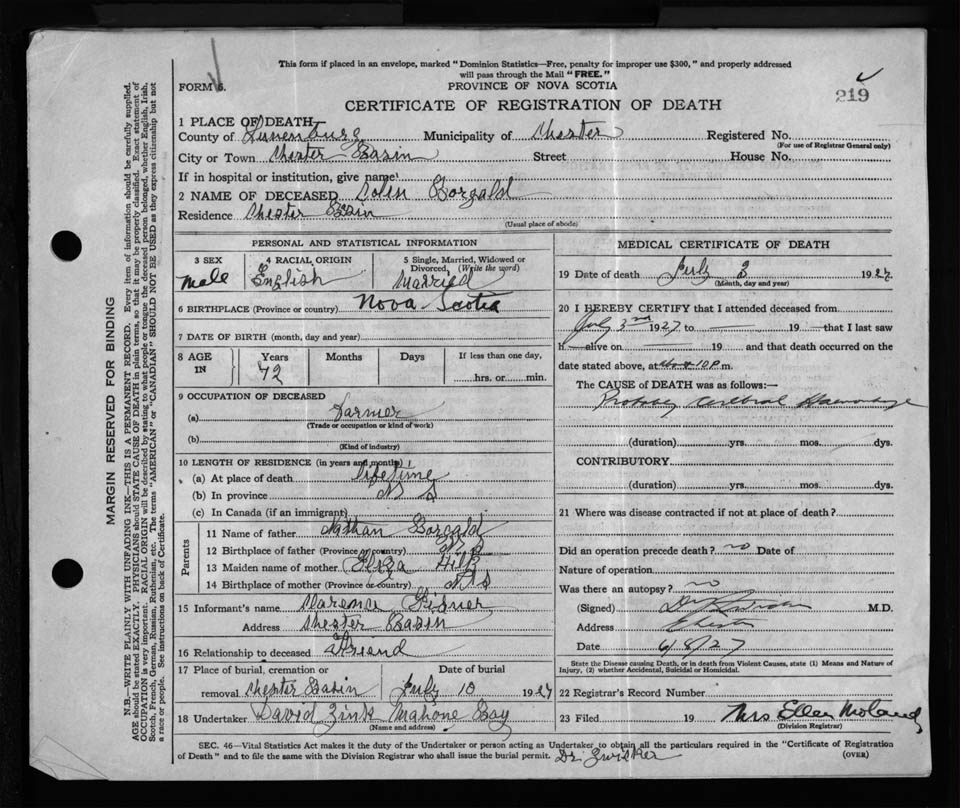 This form if placed in an envelope, marked "Dominion Statistics—Free, penalty for improper use $300," and properly addressed
will pass through the Mail "FREE."
FORM 6.
PROVINCE OF NOVA SCOTIA
219
CERTIFICATE OF REGISTRATION OF DEATH
1 PLACE OF DEATH
County of Lunenburg Municipality of Chester Registered No.
(For use of Registrar General only)
City or Town Chester Basin Street House No.
If in hospital or institution, give name
2 NAME OF DECEASED Colin Gorzald
Residence Chester Basin
(Usual place of abode)
PERSONAL AND STATISTICAL INFORMATION
3 SEX 4 RACIAL ORIGIN 5 Single, Married, Widowed or
Divorced, (Write the word)
Male English Married
6 BIRTHPLACE (Province or country) Nova Scotia
7 DATE OF BIRTH (month, day and year)
8 AGE Years Months Days If less than one day,
IN 72 hrs. or min.
9 OCCUPATION OF DECEASED
(a) Farmer
(Trade or occupation or kind of work)
(b)
(Kind of industry)
10 LENGTH OF RESIDENCE (in years and months)
(a) At place of death lifetime
(b) In province N S
(c) In Canada (if an immigrant)
Parents
11 Name of father Nathan Gorzald
12 Birthplace of father (Province or country) N S
13 Maiden name of mother Eliza
14 Birthplace of mother (Province or country) N S
15 Informant's name Clarence
Address Chester Basin
16 Relationship to deceased Friend
17 Place of burial, cremation or Date of burial
removal Chester Basin July 10 1927
18 Undertaker David Zink Mahone Bay
(Name and address)
MEDICAL CERTIFICATE OF DEATH
19 Date of death July 3 1927
(Month, day and year)
20 I HEREBY CERTIFY that I attended deceased from
July 3rd 1927 to — 19 — that I last saw
h — alive on — 19 and that death occurred on the
date stated above, at 10 P m.
The CAUSE of DEATH was as follows:—
Probably Cerebral Haemorrhage
(duration) yrs. mos. dys.
CONTRIBUTORY
(duration) yrs. mos. dys.
21 Where was disease contracted if not at place of death?
Did an operation precede death? no Date of
Nature of operation
Was there an autopsy? no
(Signed) M.D.
Address Chester
Date 6/8/27
State the Disease causing Death, or in death from Violent Causes, state (1) Means and Nature of
Injury, (2) whether Accidental, Suicidal or Homicidal.
22 Registrar's Record Number
23 Filed 19 Mrs Ellen Moland
(Division Registrar)
SEC. 46—Vital Statistics Act makes it the duty of the Undertaker or person acting as Undertaker to obtain all the particulars required in the "Certificate of Registration
of Death" and to file the same with the Division Registrar who shall issue the burial permit. (OVER)
Dr. Zwicker
MARGIN RESERVED FOR BINDING
N.B.—WRITE PLAINLY WITH UNFADING INK—THIS IS A PERMANENT RECORD. Every item of information should be carefully supplied.
AGE should be stated EXACTLY. PHYSICIANS should STATE CAUSE OF DEATH in plain terms, so that it may be properly classified. Exact statement of
OCCUPATION is very important. RACIAL ORIGIN will be described by stating to what people or tongue the deceased person belonged, whether English, Irish,
Scotch, French, German, Russian, Ruthenian, etc. The terms "AMERICAN" or "CANADIAN" SHOULD NOT BE USED as they express citizenship but not
a race or people. See instructions on back of Certificate.